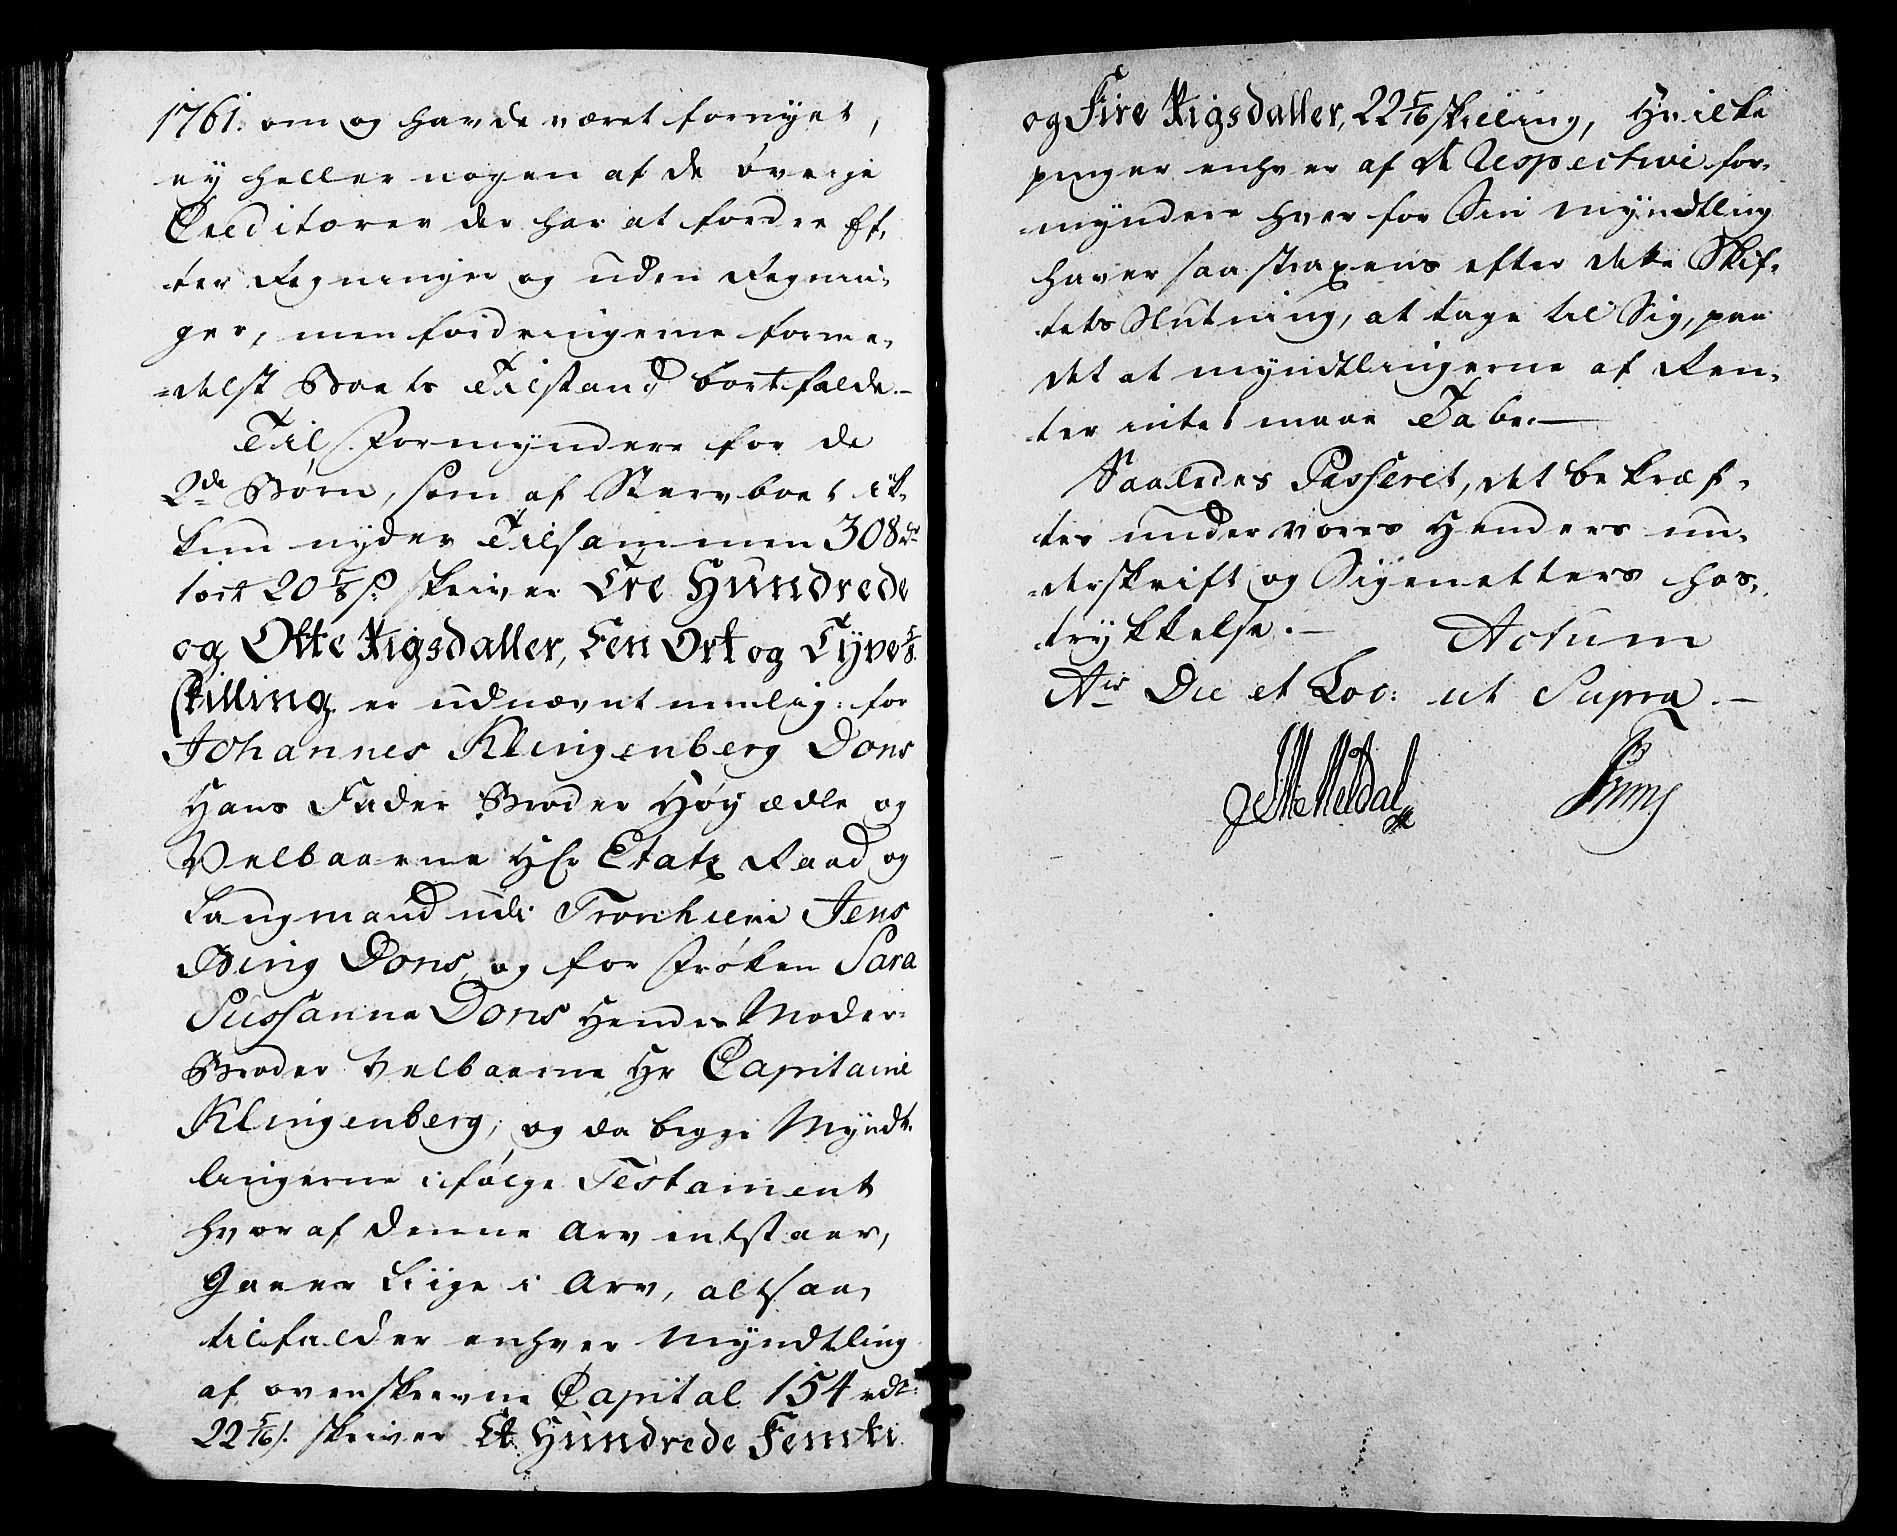 1761. om og havde været fornyet,
ey heller nogen af de øvrige
Creditorer der har at fordre Ef-
ter Regninger og uden Regnin-
ger, men fordringerne forme-
delst Boets Tilstand bortfalde.—
Til Formyndere for de
2de Børn, som af Stervboet ik-
kun nyder Tilsammen 308 rdr
1 ort 20 5/8 s. skriver Tre Hundrede
og Otte Rigsdaller, Een Ort og Tyve 5/8
skilling er udnævnt nemlig: for
Johannes Klingenberg Dons
Hans Fader Broder Høy ædle og
Velbaarne Hr Etatz Raad og
Laugmand udi Tronhiem Jens
Bing Dons, og for Frøken Sara
Sussanna Dons Hendes Moder-
Broder Velbaarne Hr Capitaine
Klingenberg, og da begge Myndt-
lingerne ifølge Testament
hvoraf denne Arv entstaaer,
Gaaer Liige i Arv, altsaa
tilfalder enhver Myndtling
af ovenskrevne Capital 154 rdr:
22 5/16 s. skriver Et Hundrede Femti
og Fire Rigsdaller, 22 5/16 skilling, Hvilke
penger enhver af de Respective for-
myndere hver for Sin Myndtling
haver saa straxens efter dette Skif-
tets Slutning, at tage til Sig, paa
det at myndtlingerne af Ren-
ter intet maae Tabe.—
Saaledes Passeret, det bekræf-
tes under vores Henders un-
derskrift og Signetters hos-
trykkelse.— Actum
Ais Die et Loc: ut Supra.—
Meldal